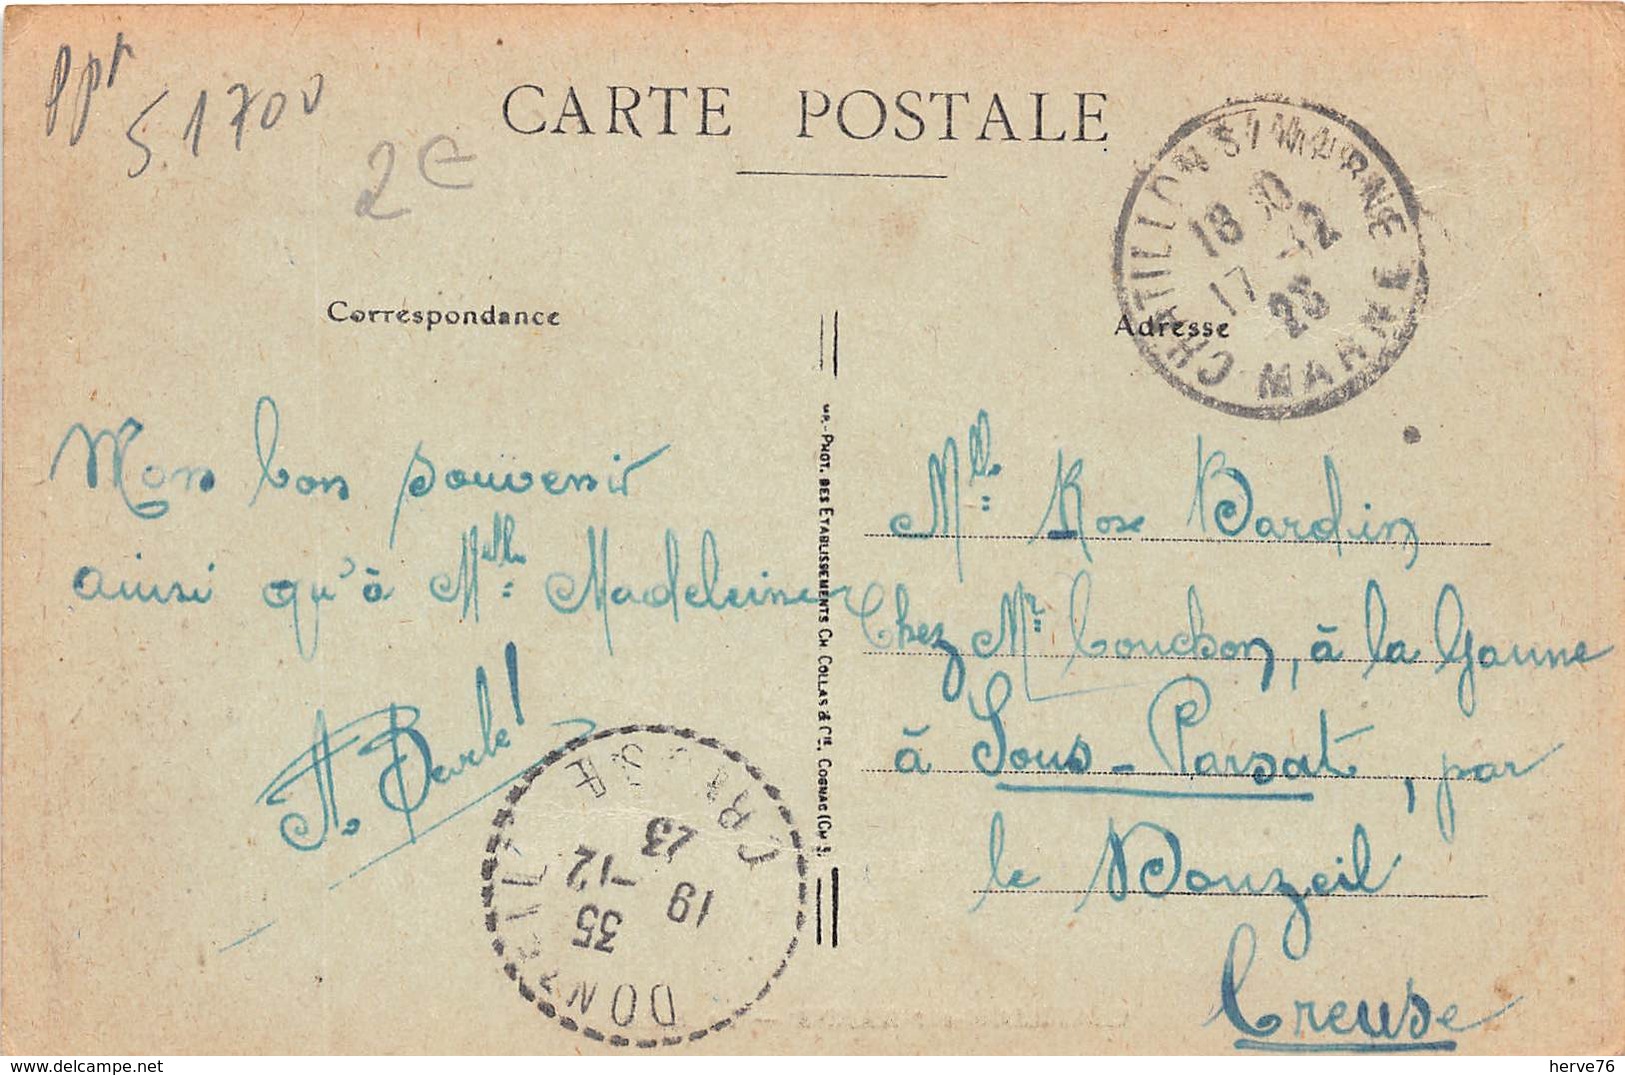 ppt
51700
2€
CARTE POSTALE
CHATILLON S/ MARNE * MARNE
18 30
17 -12
23
Correspondance
Adresse
Mon bon souvenir
ainsi qu'à Melle Madeleine
IMP.-PHOT. DES ETABLISSEMENTS CH. COLLAS & CIE, COGNAC (CH.S.
Mlle Rose Bardin
Chez Mr Couchon, à la Goune
à Sous-Parsat, par
le Donzeil
Creuse
DONZEIL CREUSE
35
19 -12
23
delcampe.net
herve76